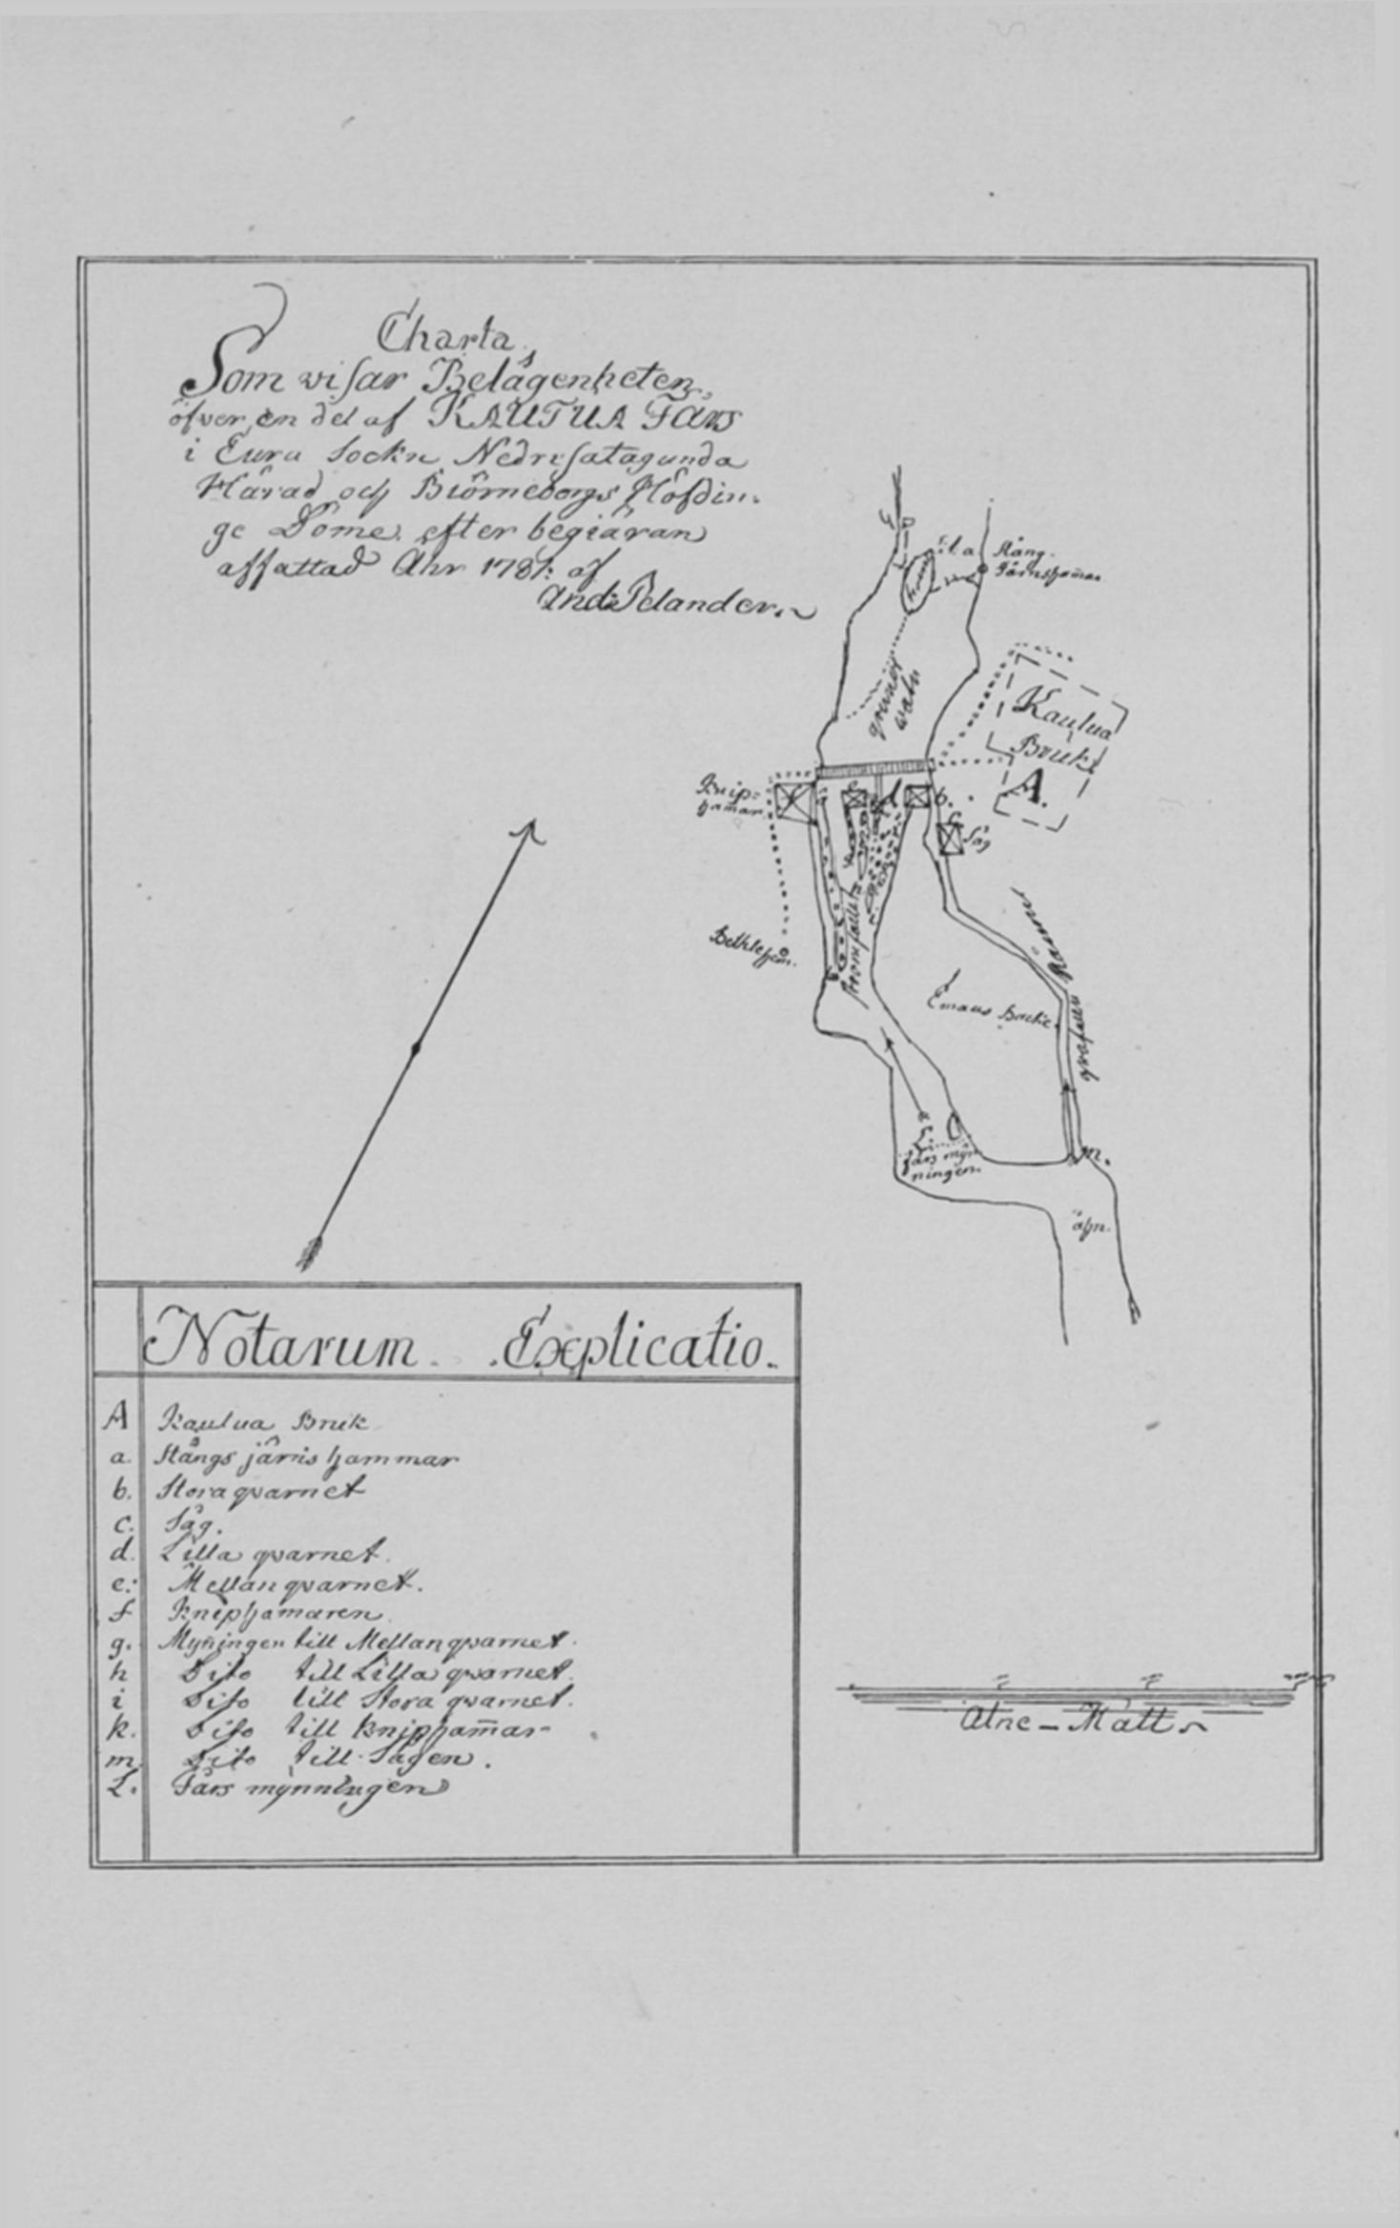 Charta
Som visar Belägenheten
öfver en del af KAUTUA Fårs
i Eura Sockn Nedresatagunda
Härad och Biörneborgs Höfdin-
ge Döme efter begiäran
affattad Åhr 178 : af
And: Pelander.
a Stång-
Järnshamar
grundt
watn
Kautua
Bruk
A.
Knip-
hamar
f
d
b.
c
Såg
Strömfallet
Bethlehem.
Emaus Backe
qvarnen
L.
fårs myn-
ningen.
m.
åhn.
Notarum Explicatio.
A Kautua Bruk
a. Stångs järns hammar
b. Stora qvarnet
c. Såg.
d. Lilla qvarnet.
e: Mellanqvarnet.
f Kniphamaren
g. Myn̄ingen till Mellanqvarnet.
h Dito till Lilla qvarnet.
i Dito till Stora qvarnet.
k. Dito till Knipham̄ar
m Dito till Sågen.
L. Fårs mynningen
Alne-Mått